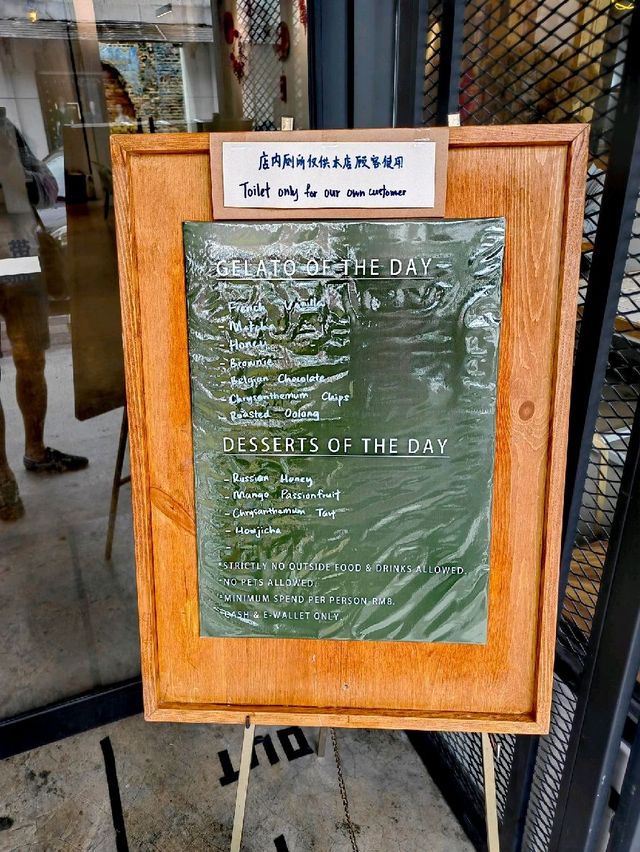 店内厕所仅供本店顾客使用
Toilet only for our own customer
GELATO OF THE DAY
- French Vanilla
- Matcha
- Honey
- Brownie
- Belgian Chocolate
- Chrysanthemum Chips
- Roasted Oolong
DESSERTS OF THE DAY
- Russian Honey
- Mango Passionfruit
- Chrysanthemum Tart
- Houjicha
*STRICTLY NO OUTSIDE FOOD & DRINKS ALLOWED.
*NO PETS ALLOWED.
*MINIMUM SPEND PER PERSON RM8.
*CASH & E-WALLET ONLY.
OUT